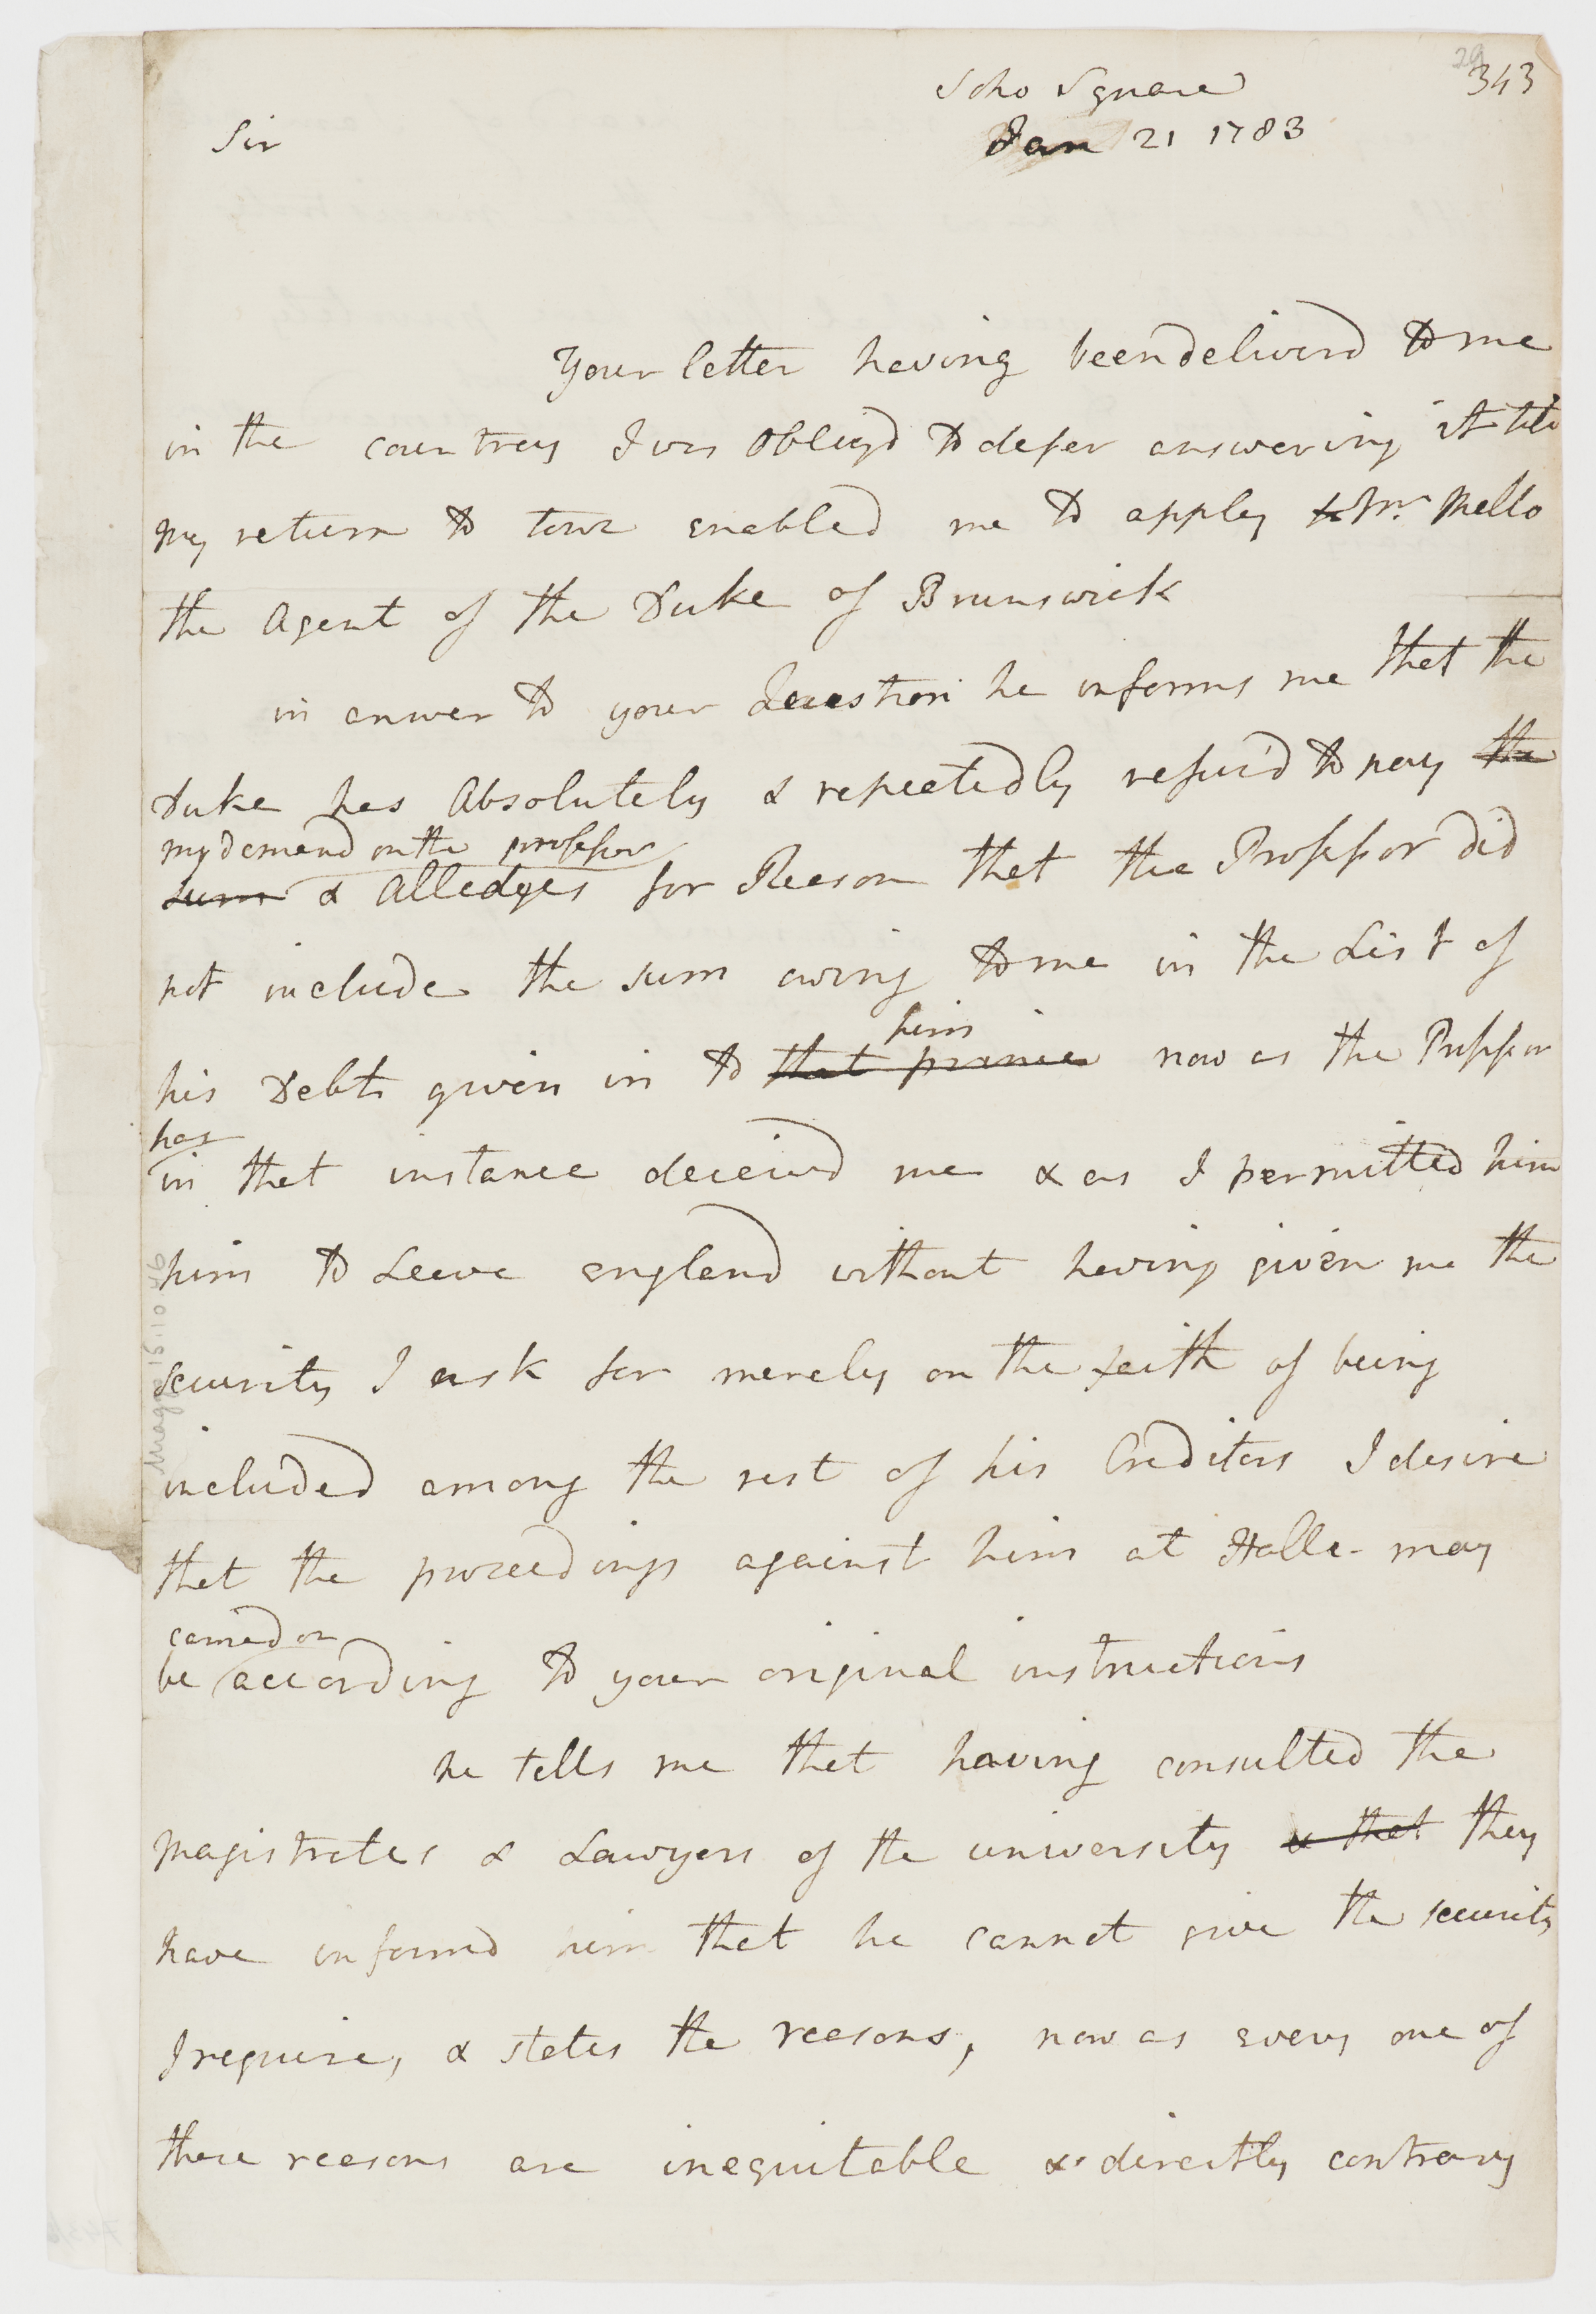 29
343
Soho Square
Jan 21 1783
Sir
Your letter having been deliverd to me
in the countrey I was Obligd to defer answering it till
my return to town enabled me to apply to Mr. Mello
the Agent of the Duke of Brunswick
in answer to your Question he informs me that the
Duke has Absolutely & repeatedly refus'd to pay the
my demand on the professor
sum & Alledges for Reason that the Professor did
not include the sum owing to me in the List of
him
his Debts given in to that prince now as the Professor
has
in that instance deceivd me & as I permitted him
him to Leave england without having given me the
security I ask for merely on the faith of being
included among the rest of his Creditors I desire
that the proceedings against him at Halle may
carried on
be according to your original instructions
he tells me that having consulted the
magistrates & Lawyers of the university & that they
have informd him that he cannot give the security
I require, & states the reasons, now as every one of
these reasons are inequitable & directly contrary